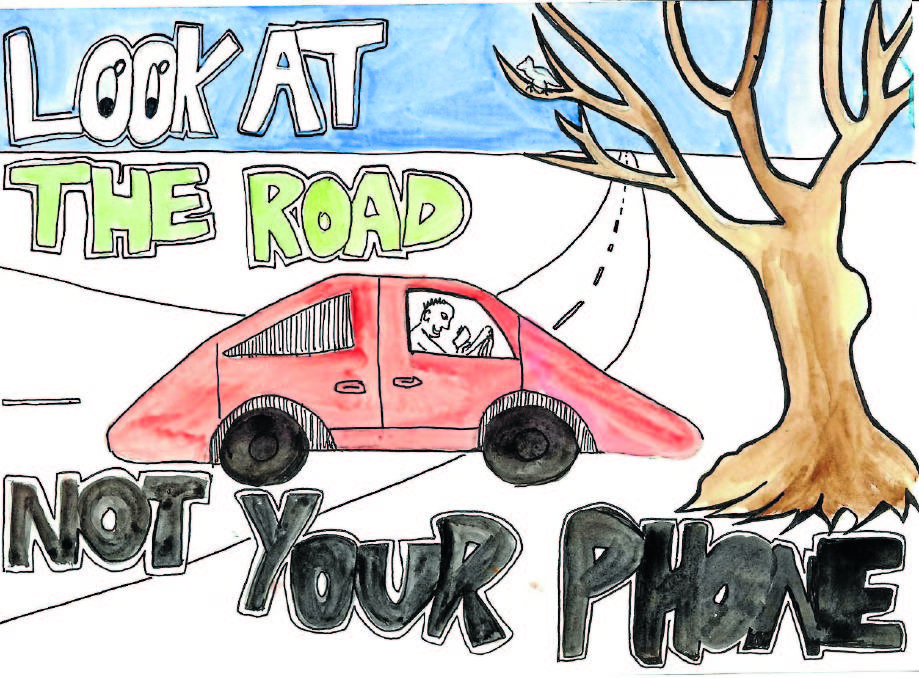 LOOK AT
THE ROAD
NOT YOUR PHONE